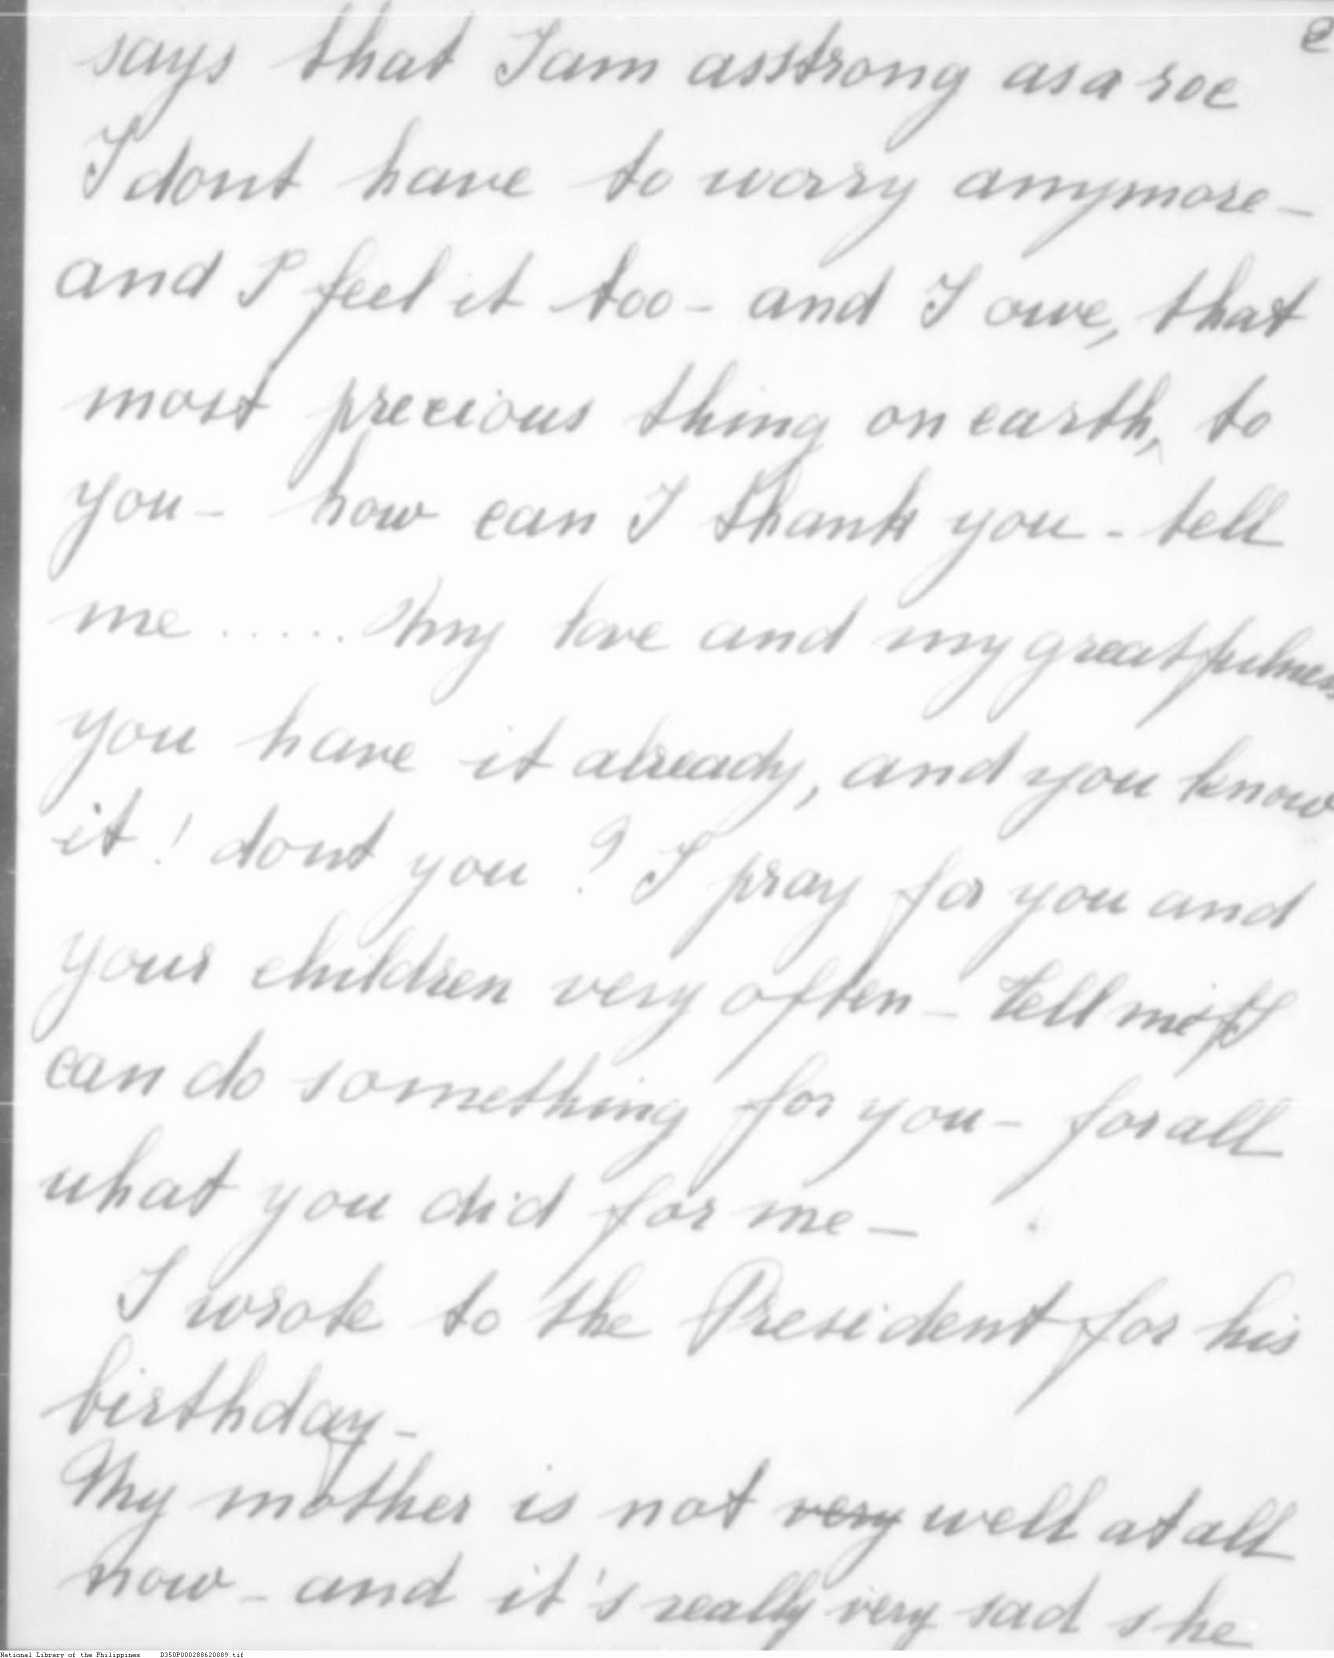 2
says that I am as strong as a roe
I dont have to worry anymore –
and I feel it too – and I owe, that
most precious thing on earth, to
you – how can I thank you – tell
me ..... My love and my greatfulness
you have it already, and you know
it! dont you? I pray for you and
your children very often – tell me if I
can do something for you – for all
what you did for me –
I wrote to the President for his
birthday –
My mother is not very well at all
now – and it's really very sad she
National Library of the Philippines D350P000288620089.tif